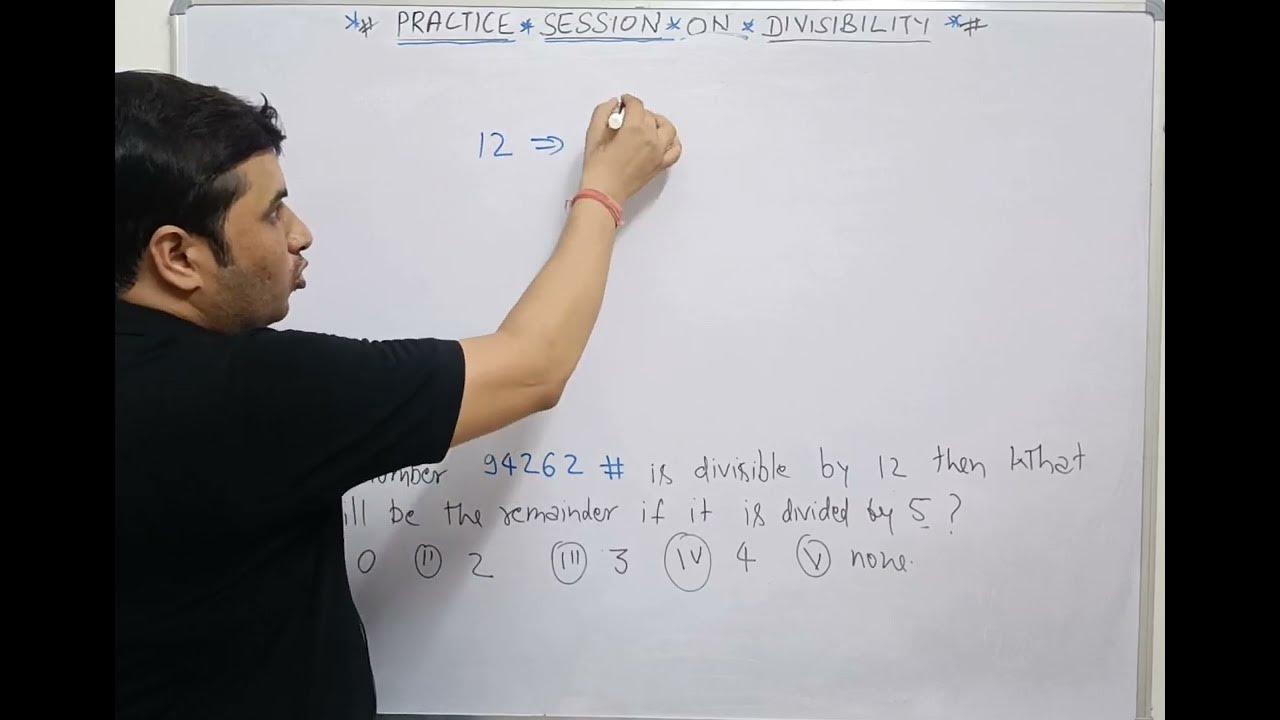 *# PRACTICE * SESSION * ON * DIVISIBILITY *#
12 ⇒
number 94262 # is divisible by 12 then What
ill be the remainder if it is divided by 5 ?
0 (ii) 2 (iii) 3 (iv) 4 (v) none.